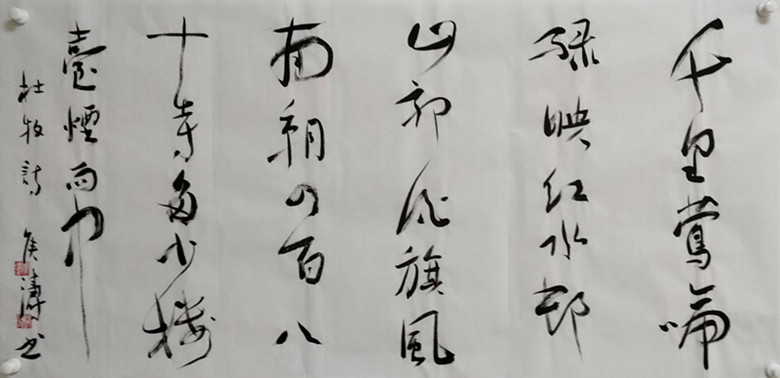 千里鶯啼
绿映红水邨
山郭酒旗風
南朝四百八
十寺多少樓
臺煙雨中
杜牧詩 侯 书